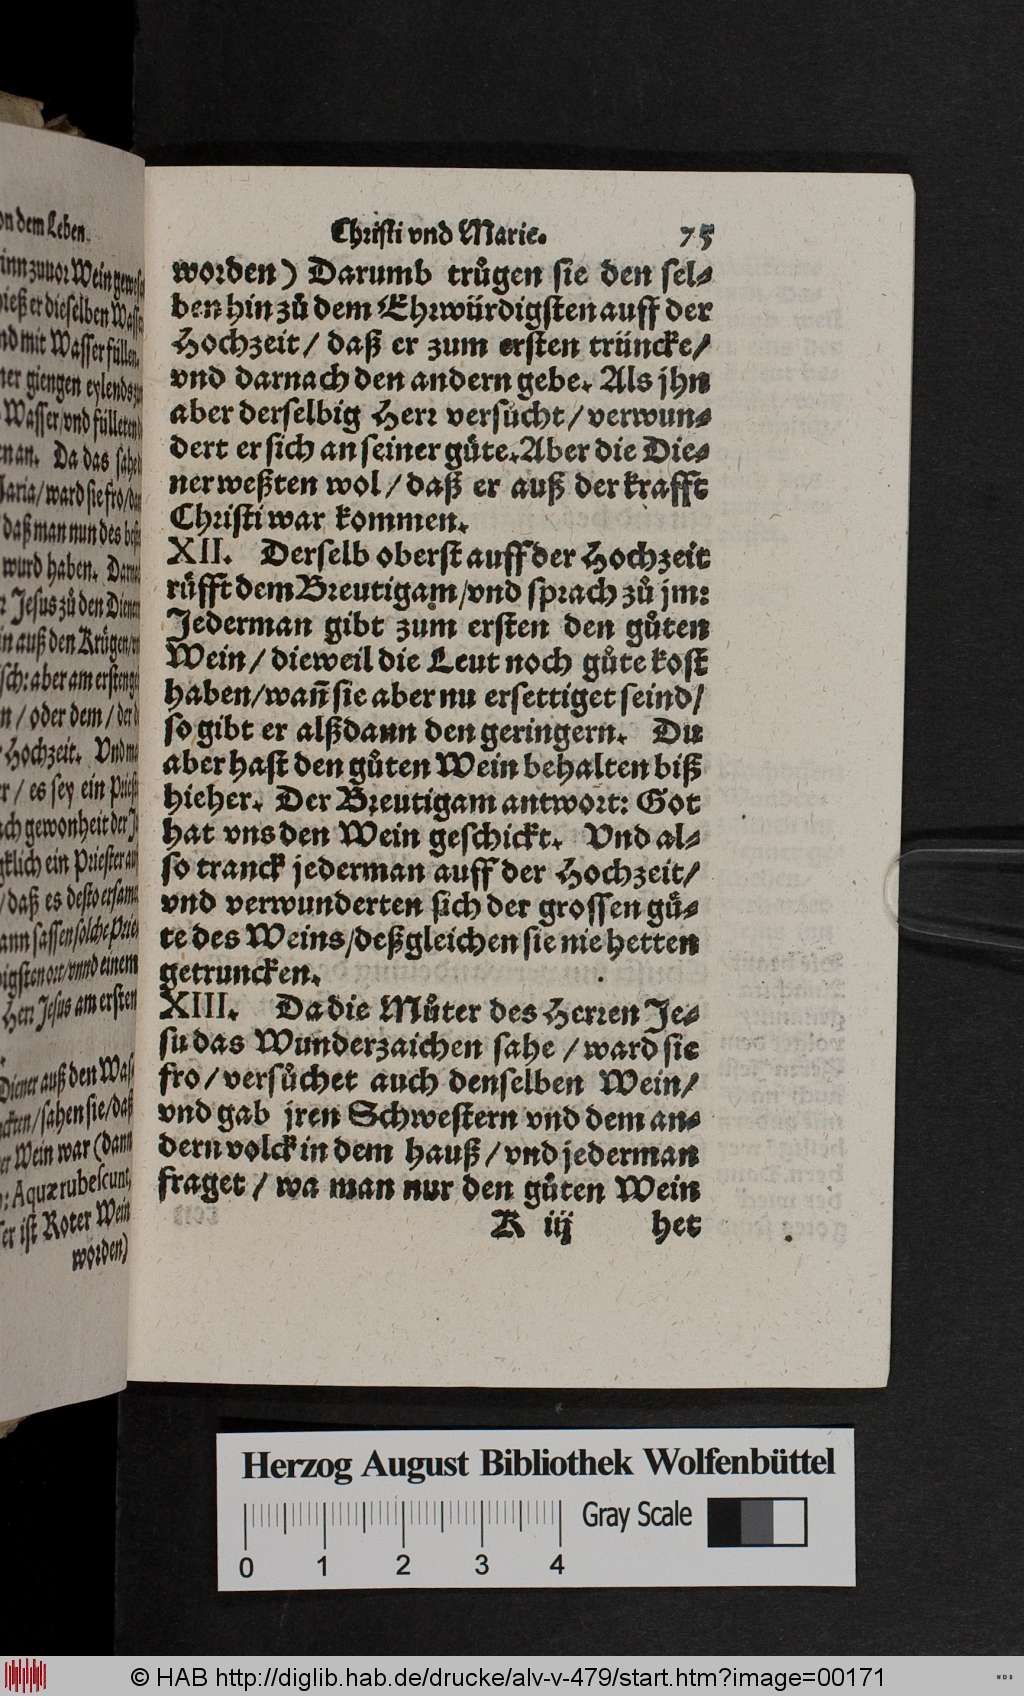 on dem Leben.
inn zuuor Wein gewes
ieß er dieselben Wass
nd mit Wasser füllen.
ner giengen eylends
Wasser/vnd fülleten
en an. Da das sahe
Maria/ward sie fro/
daß man nun des
wurd haben.
Jesus zů den Diener
in auß den Krügen/
sch: aber am ersten
n/oder dem/der
Hochzeit. Vnd
r/es sey ein
ach gewonheit der
glich ein Priester
/daß es desto ersame
ann sassen solche Prie
igsten ort/vnnd einem
Herr Jesus am ersten
Diener auß den Was
sahen sie/daß
er Wein war (dann
: Aquæ rubescunt,
er ist Roter Wein
worden)
Christi vnd Marie. 75
worden) Darumb trůgen sie den sel-
ben hin zů dem Ehrwürdigsten auff der
Hochzeit/ daß er zum ersten trüncke/
vnd darnach den andern gebe. Als jhn
aber derselbig Herr versůcht/verwun-
dert er sich an seiner gůte. Aber die Die-
ner weßten wol/ daß er auß der krafft
Christi war kommen.
XII. Derselb oberst auff der Hochzeit
růfft dem Breutigam/vnd sprach zů jm:
Jederman gibt zum ersten den gůten
Wein/ dieweil die Leut noch gůte kost
haben/wañ sie aber nu ersettiget seind/
so gibt er alßdann den geringern. Du
aber hast den gůten Wein behalten biß
hieher. Der Breutigam antwort: Got
hat vns den Wein geschickt. Vnd al-
so tranck jederman auff der Hochzeit/
vnd verwunderten sich der grossen gů-
te des Weins/deßgleichen sie nie hetten
getruncken.
XIII. Da die Můter des Herren Je-
su das Wunderzaichen sahe/ward sie
fro/versůchet auch denselben Wein/
vnd gab jren Schwestern vnd dem an-
dern volck in dem hauß/vnd jederman
fraget/ wa man nur den gůten Wein
K iij het
Herzog August Bibliothek Wolfenbüttel
Gray Scale
0 1 2 3 4
© HAB http://diglib.hab.de/drucke/alv-v-479/start.htm?image=00171